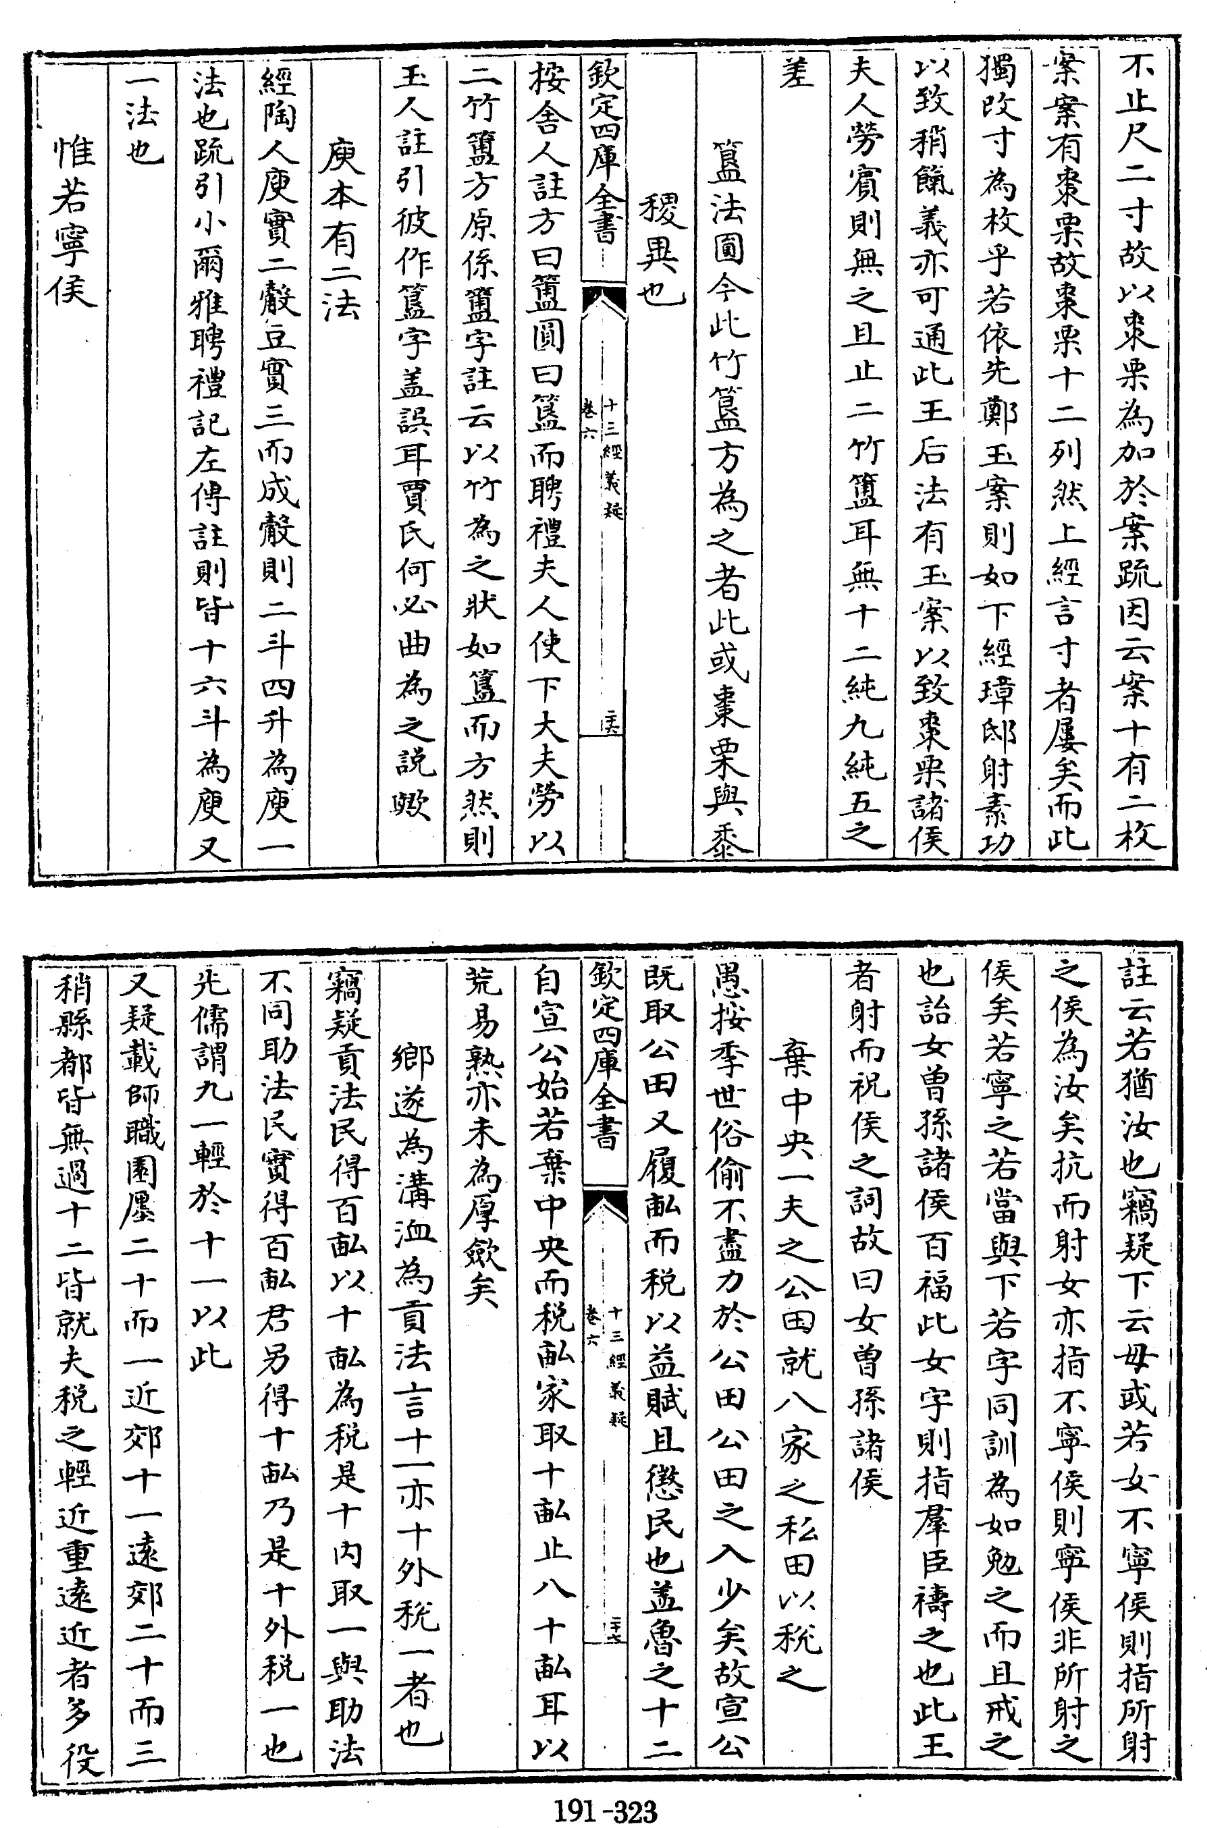 不止尺二寸故以棗栗為加於案疏因云案十有二枚
案案有棗栗故棗栗十二列然上經言寸者屢矣而此
獨改寸為枚乎若依先鄭玉案則如下經璋邸射素功
以致稍餼義亦可通此王后法有玉案以致棗栗諸侯
夫人勞賓則無之且止二竹簠耳無十二純九純五之
差
簋法圓今此竹簋方為之者此或棗栗與黍
稷異也
欽定四庫全書
十三經義疑
卷六
按舍人註方曰簠圓曰簋而聘禮夫人使下大夫勞以
二竹簠方原係簠字註云以竹為之狀如簋而方然則
玉人註引彼作簋字盖誤耳賈氏何必曲為之説歟
庾本有二法
經陶人庾實二觳豆實三而成觳則二斗四升為庾一
法也疏引小爾雅聘禮記左傳註則皆十六斗為庾又
一法也
惟若寧侯
註云若猶汝也竊疑下云毋或若女不寧侯則指所射
之侯為汝矣抗而射女亦指不寧侯則寧侯非所射之
侯矣若寧之若當與下若字同訓為如勉之而且戒之
也詒女曾孫諸侯百福此女字則指羣臣禱之也此王
者射而祝侯之詞故曰女曾孫諸侯
棄中央一夫之公田就八家之私田以稅之
愚按季世俗偷不盡力於公田公田之入少矣故宣公
既取公田又履畝而稅以益賦且懲民也盖魯之十二
欽定四庫全書
十三經義疑
卷六
自宣公始若棄中央而稅畝家取十畝止八十畝耳以
荒易熟亦未為厚歛矣
鄉遂為溝洫為貢法言十一亦十外稅一者也
竊疑貢法民得百畝以十畝為稅是十内取一與助法
不同助法民實得百畝君另得十畝乃是十外稅一也
先儒謂九一輕於十一以此
又疑載師職園廛二十而一近郊十一遠郊二十而三
稍縣都皆無過十二皆就夫稅之輕近重遠近者多役
191-323